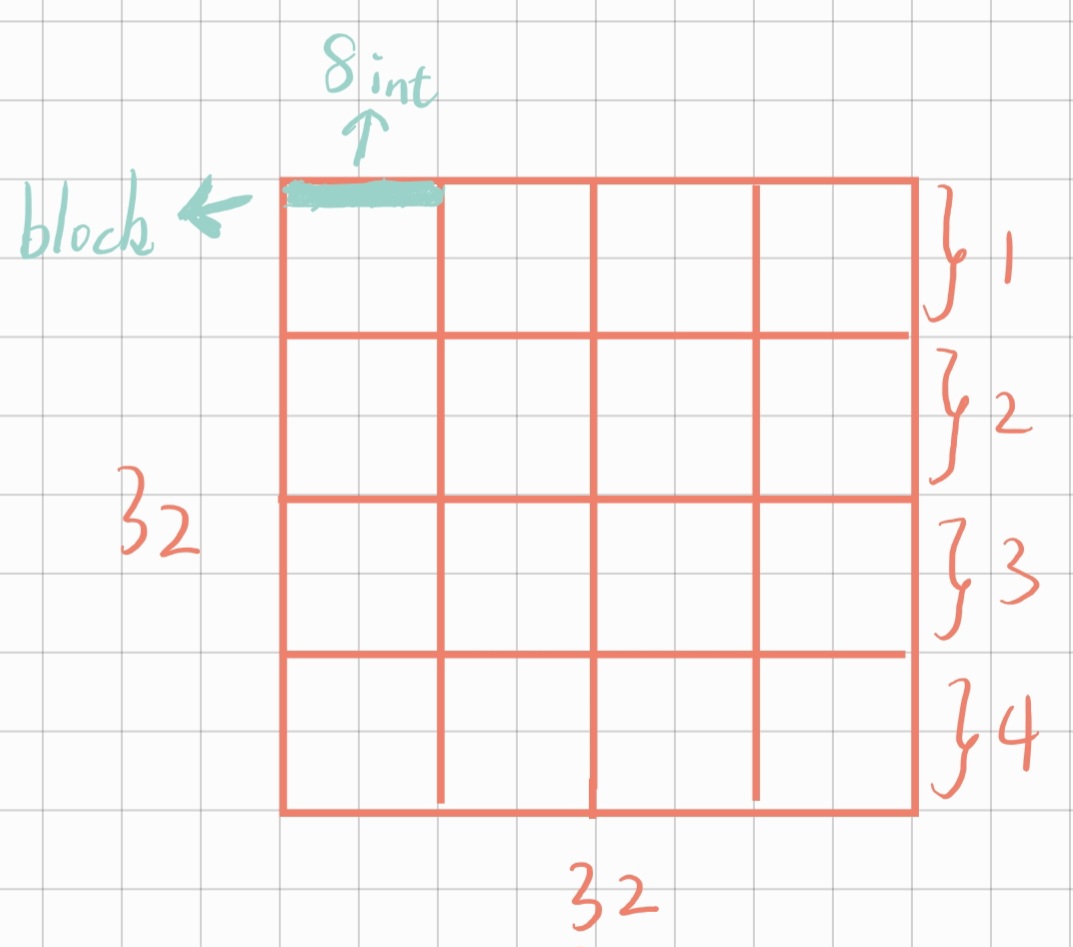 8 int
block
1
2
32
3
4
32